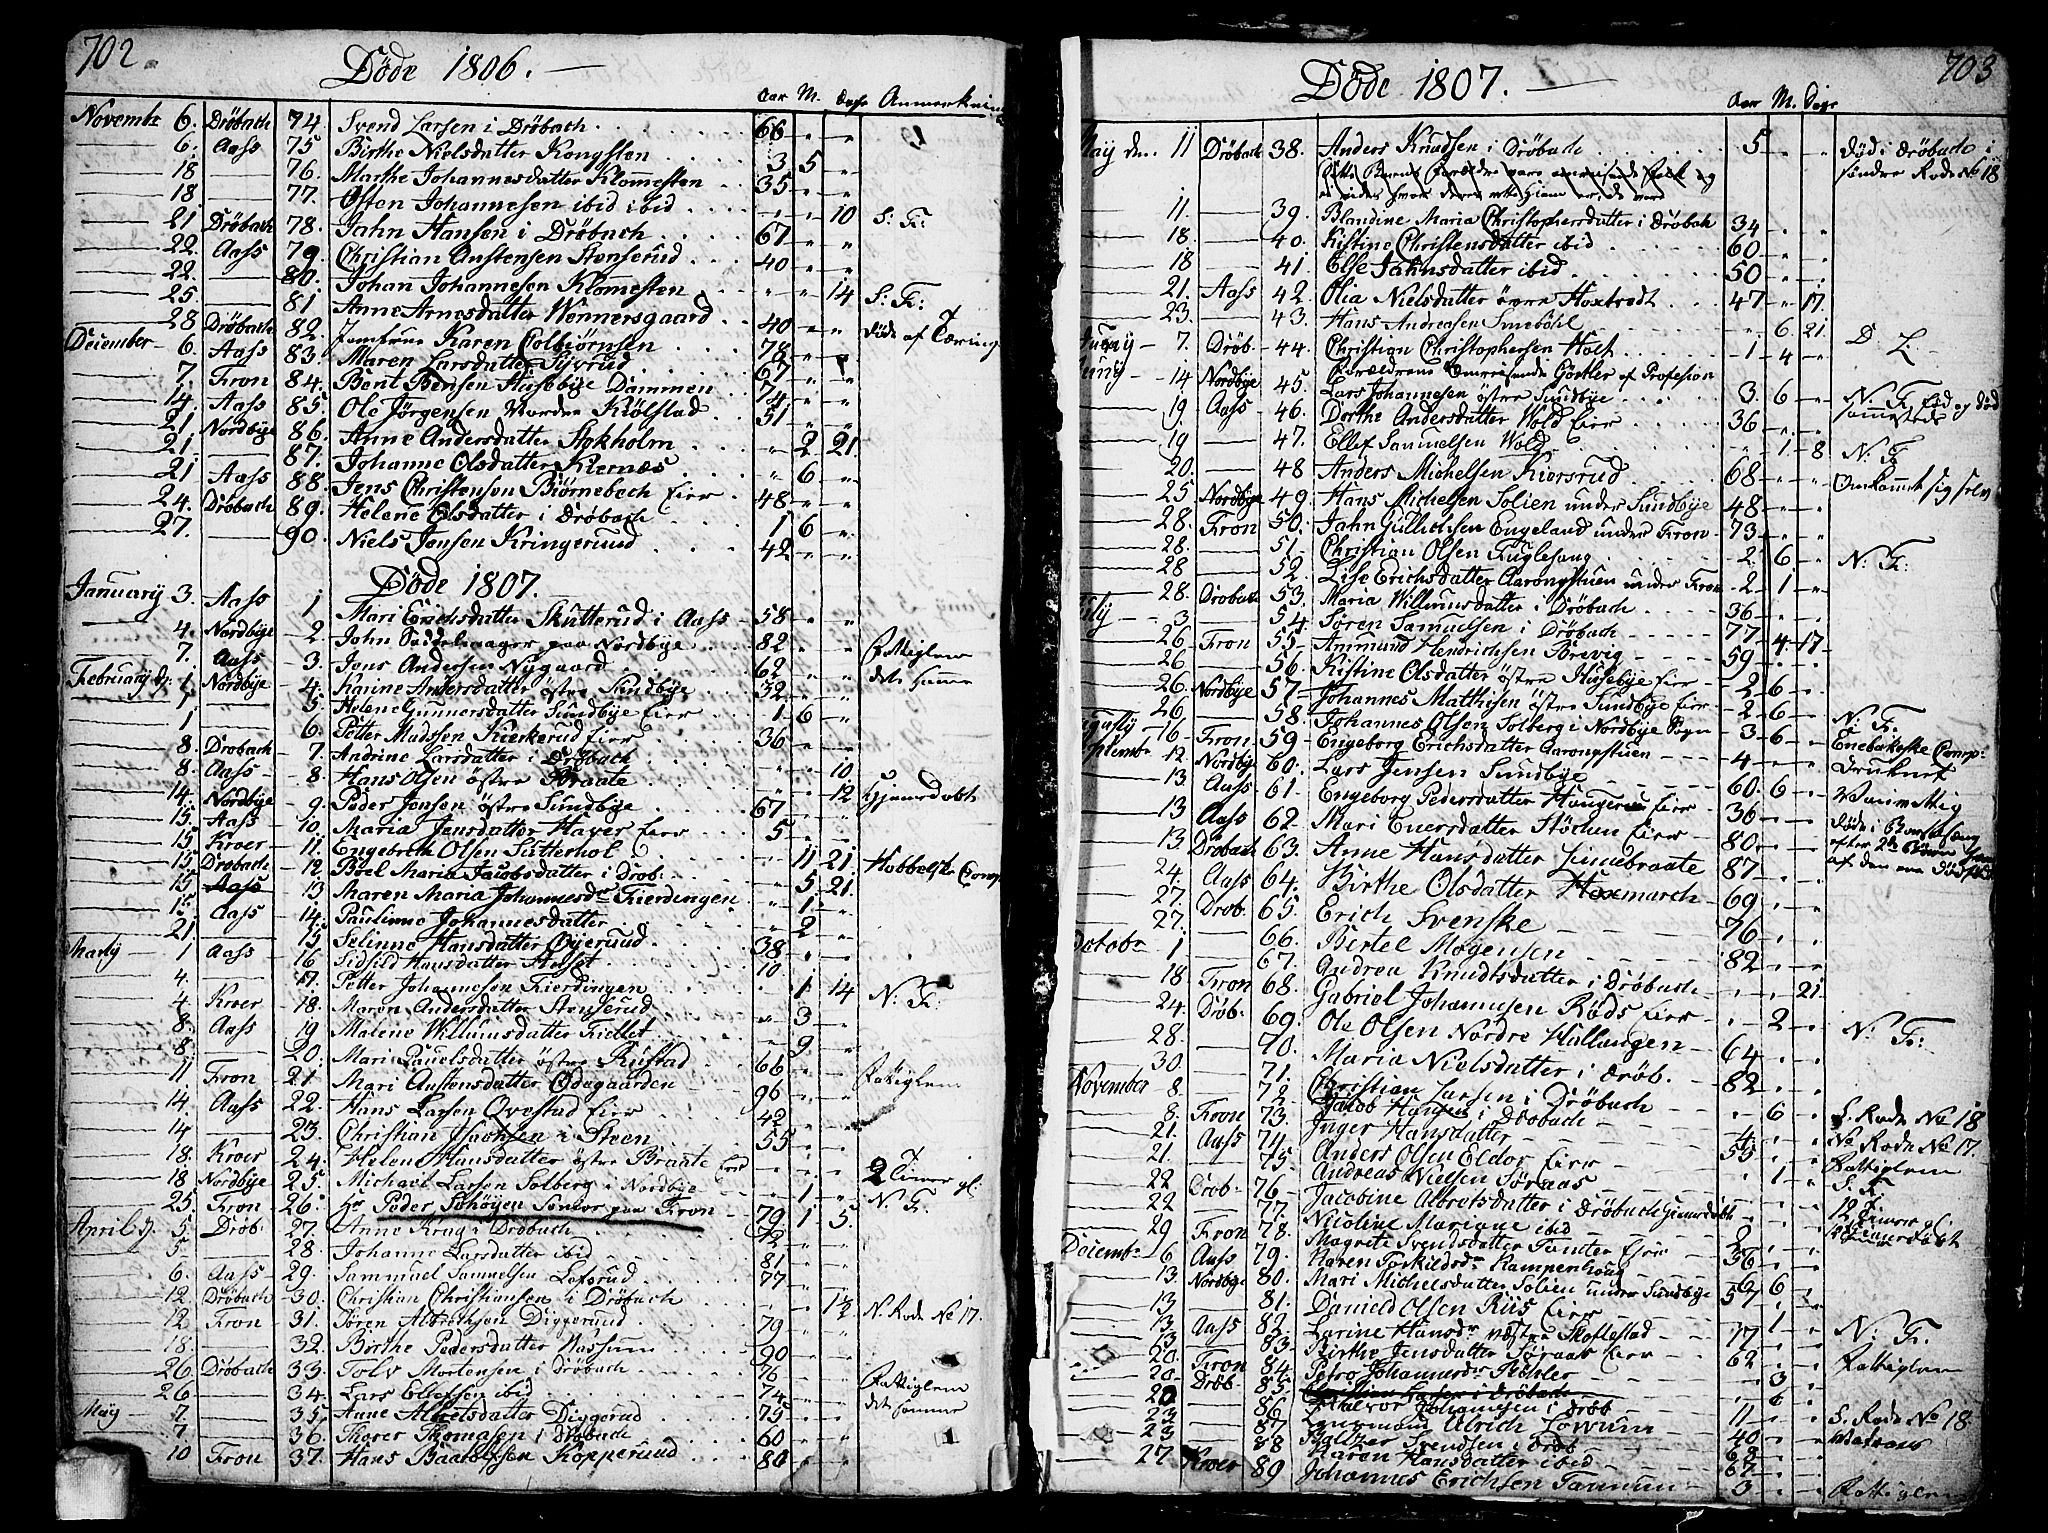 702
Døde 1806.
Aar M. Dage Anmerkning
Novembr 6. Drøbach 74. Svend Larsen i Drøbach 66 " "
6. Aass 75 Birthe Nielsdatter Kongsten 3 5 "
18 76. Marthe Johannesdatter Klommesten 35 " "
18 77. Osten Johannesen ibid ibid " " 10 S: F:
21 Drøbach 78. Jahn Hansen i Drøbach 67 " "
22. Aass 79. Christian Austensen Stenserud 40 " "
22. 80. Johan Johannesen Klomesten " " 14 S: F:
25. 81 Anne Arnesdatter Wennersgaard 40 " "
28. Drøbach 82. Jomfrue Karen Colbiørnsen 78 " "
December 6. Aass 83. Maren Larsdatter 67 " "
7. Fron 84. Bent Bensen Husebye Dammen 74 " "
14. Aass 85. Ole Jørgensen Nordre Kiølstad 51 " "
21 Nordbye 86. Anne Andersdatter Stokholm " 2 21
21. 87. Johanne Olsdatter Kiernæs " 6 "
21 Aass 88. Jens Christensen Biørnebech Eier 48 " "
24. Drøbach 89. Helene Olsdatter i Drøbach 1 6 "
27. 90. Niels Jensen Kringerud 42 " "
Døde 1807.
January 3. Aass 1 Mari Erichsdatter Skutterud i Aass 58 " "
4. Nordbye 2 John Saddelmager paa Nordbye 82 " " Fattiglem
7. Aass 3. Jens Andersen Nygaard 62 " " det samme
February d. 1 Nordbye 4. Karine Andersdatter østre Sundbye 32 " "
1 5 Helene Gunnersdatter Sundbye Eier 1 6 "
1 6. Petter Madssen Kierkerud Eier 36 " "
8. Drobach 7. Andrine Larsdatter i Drøbach " " 10
8. Aass 8. Hans Olsen østre Braate " " 12 Hjemdøbt
14 Nordbye 9. Peder Jensen østre Sundbye 67 " "
15. Aass 10. Maria Jensdatter Haver Eier 5 " "
15 Kroer 11. Engebreth Olsen Sutterhol " 11 21
15 Drobach 12. Boel Maria Jacobsdatter i Drob. " 5 21
15 Aass 13. Maren Maria Johannesdr Fierdingen " 1 "
15. Aass 14. Paulinne Johannesdatter " 2 "
21 15 Selinne Hansdatter Øyerud 38 " "
Marty 1 Aass 16 Sidsild Hansdatter 10 " "
4. 17. Petter Johannesen Fierdingen " 1 14 N: F:
4. Kroer 18. Maren Andersdatter Stenserud " 3 "
8. Aass 19 Malene Willumsdatter Fiellet " 9 "
8 20. Mari Pauelsdatter østre Rustad 66 " "
11 Fron 21. Mari Austensdatter Ødegaarden 96 " " Fattiglem
14. Aass 22. Hans Larsen Qvestad Eier 42 " "
14. 23. Christian Isachsen i Steen 55 " "
18. Kroer 24. Helene Hansdatter østre Braate Eier " " " 2 Timer gl:
18 Nordbye 25. Michael Larsen Solberg i Nordbye " 1 " N. F:
25. Fron 26. Hr Peder Schøyen Senior paa Fron 79 1 5
April d. 5 Drøb. 27. Anne Krag i Drobach 42 " "
5 28. Johanne Larsdatter ibid 81 " "
6. Aass 29. Sammuel Samuelsen Løfsrud 77 " "
12 Drøbach 30. Christian Christiansen i Drøbach " " 1½ N. Rode No 17.
12 Fron 31. Søren Albrethsen Diggerud 79 " "
18 32. Birthe Pedersdatter Nassum 90 " "
26 Drøbach 33. Tolv Mortensen i Drøbach 76 " " Fattiglem
26 34. Lars Ellefsen ibid 74 " " det samme
May 7 35. Anne Albretsdatter Diggerud 75 " "
7 36. Thorer Thomasen i Drobach 60 " "
10 Fron 37. Hans Baardssen Kopperud 80 " "
703
Døde 1807.
Aar M. Dage
May dn. 11 Drøbach 38. Anders Knudsen i Drøbach 5 " " død i Drøbach i
søndre Rode No 18
11. 39. Blandine Maria Christophersdatter i Drøbach 34 " "
18. 40. Kistine Christensdatter ibid 60 " "
18 41. Else Jahnsdatter ibid 50 " "
21. Aass 42. Olia Nielsdatter øvre Haxbrodt 47 " 17.
23. 43. Hans Andreasen Smebøhl " 6 21.
Juny 7. Drøb. 44. Christian Christophersen Holt 1 4 "
Forældrene Omreisende Gørtler af Profesion
Juny 14 Nordbye 45. Lars Johannesen østre Sundbye 3 6 " N: F. Fød og død
19. Aass 46. Dorthe Andersdatter Wold Eier 36 " "
19 47. Ellef Samuelsen Wold " 1 8 N: F.
20. 48 Anders Michelsen Kiersrud 68 " " Omkommet sig selv
25 Nordbye 49. Hans Michelsen Solien under Sundbye 48 " "
28. Fron 50. Jahn Gullichsen Engeland under Fron 73 " "
28. 51. Christian Olsen Fuglesang 2 6 " N: F:
28 52. Lise Erichsdatter Aarongstuen under Fron 2 1 "
28. Drobach 53. Maria Willumsdatter i Drøbach 36 " "
July 3 54. Søren Samuelsen i Drøbach 77 4 17
26 Fron 55. Ammund Hendrichsen Brevig 59 " "
26 56. Kistine Olsdatter østre Husebye Eier 2 6 "
26. Nordbye 57. Johannes Matthisen østre Sundbye Eier 2 6 "
26 58. Johannes Olsen Solberg i Nordbye Sogn 3 6 " N: F:
Augusty 16 Fron 59 Engeborg Erichsdatter Aarongstuen 4 " " Enebakske Comp:
Septembr 12 Nordby 60. Lars Jensen Sundbye 60 6 " Druknet
13 Aass 61. Engeborg Pedersdatter Haugerud Eier 36 " " Vanvittig
13 Aass 62. Mari Enersdatter Eier 80 " " døde i Barselseng
13 Drobach 63. Anne Hansdatter Lindebraate 87 " "
24. Aass 64. Birthe Olsdatter Haxmarch 69 " "
27. Drob. 65. Erich Svenske 76 " "
27. 66. Bertel Mogensen 82 " "
Octobr 1 67. Andrea Knudtsdatter i Drøbach " " 21.
18 Fron 68. Gabriel Johannesen Røds Eier " 2 " N: F:
24. Drøb. 69. Ole Olsen Nordre Hallangen 64 " "
28. 70. Maria Nielsdatter i Drøb. 82 " "
30. 71. Christian Larsen i Drøbach " 6 " S. Rode No 18
November 8. 72. Jacob Hansen i Drobach 4 " " No Rode No 17.
8. Fron 73. Inger Hansdatter 55 " " Fattiglem
21. Aass 74. Anders Olsen Eldor Eier " 1 " S. F.
21. 75. Andreas Nielsen Søraas " " "
22 Drob. 76. Jacobine Albretsdatter i Drøbach Hjemdøbt " " " 12 Timer
22. 77. Nicoline Mariane ibid " " "
29 Fron 78. Magrete Svendsdatter Tømter Eier 2 " "
Decembr 6 Aass 79. Karen Torkildsdr Kampenhoug 36 " "
13. Nordbye 80. Mari Michelsdatter Solien under Sundbye 57 6 "
13 81. Daniel Olsen Riis Eier " 1 " N: F.
13. Aass 82. Larine Hansdr vestre Skoflestad 77 " "
13 83. Birthe Jensdatter Søraas Eier 62 " " Fattiglem
20. Fron 84. Petro Johannesdr Røhler " 3 "
20. Drøb. 85. Christian Larsen i Drøbach " 6 "
20 86. Halvor Johannesen i Drøb 11 " " S. Rode No 18
23 87. Lensmand Ulrich Lowum 40 " "
23 88 Baltzer Svendsen i Drøb 68 " "
Karen Hansdatter ibid 67 " "
27 Kroer 89 Johannes Erichsen Tommum 3 " " Fattiglem